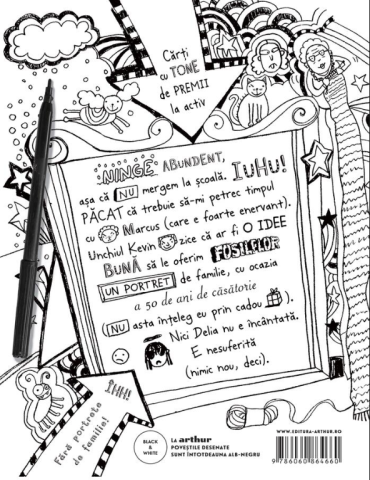 Cărți
cu TONE
de PREMII
la activ
NINGE ABUNDENT, IUHU!
așa că NU mergem la școală.
PĂCAT că trebuie să-mi petrec timpul
cu Marcus (care e foarte enervant).
Unchiul Kevin zice că ar fi O IDEE
BUNĂ să le oferim FOSILELOR
UN PORTRET de familie, cu ocazia
a 50 de ani de căsătorie
(NU asta înțeleg eu prin cadou).
Nici Delia nu e încântată.
E nesuferită
(nimic nou, deci).
ÎHH!
Fără portrete
de familie!
BLACK
&
WHITE
LA arthur
POVEȘTILE DESENATE
SUNT ÎNTOTDEAUNA ALB-NEGRU
WWW.EDITURA-ARTHUR.RO
9 786060 864660